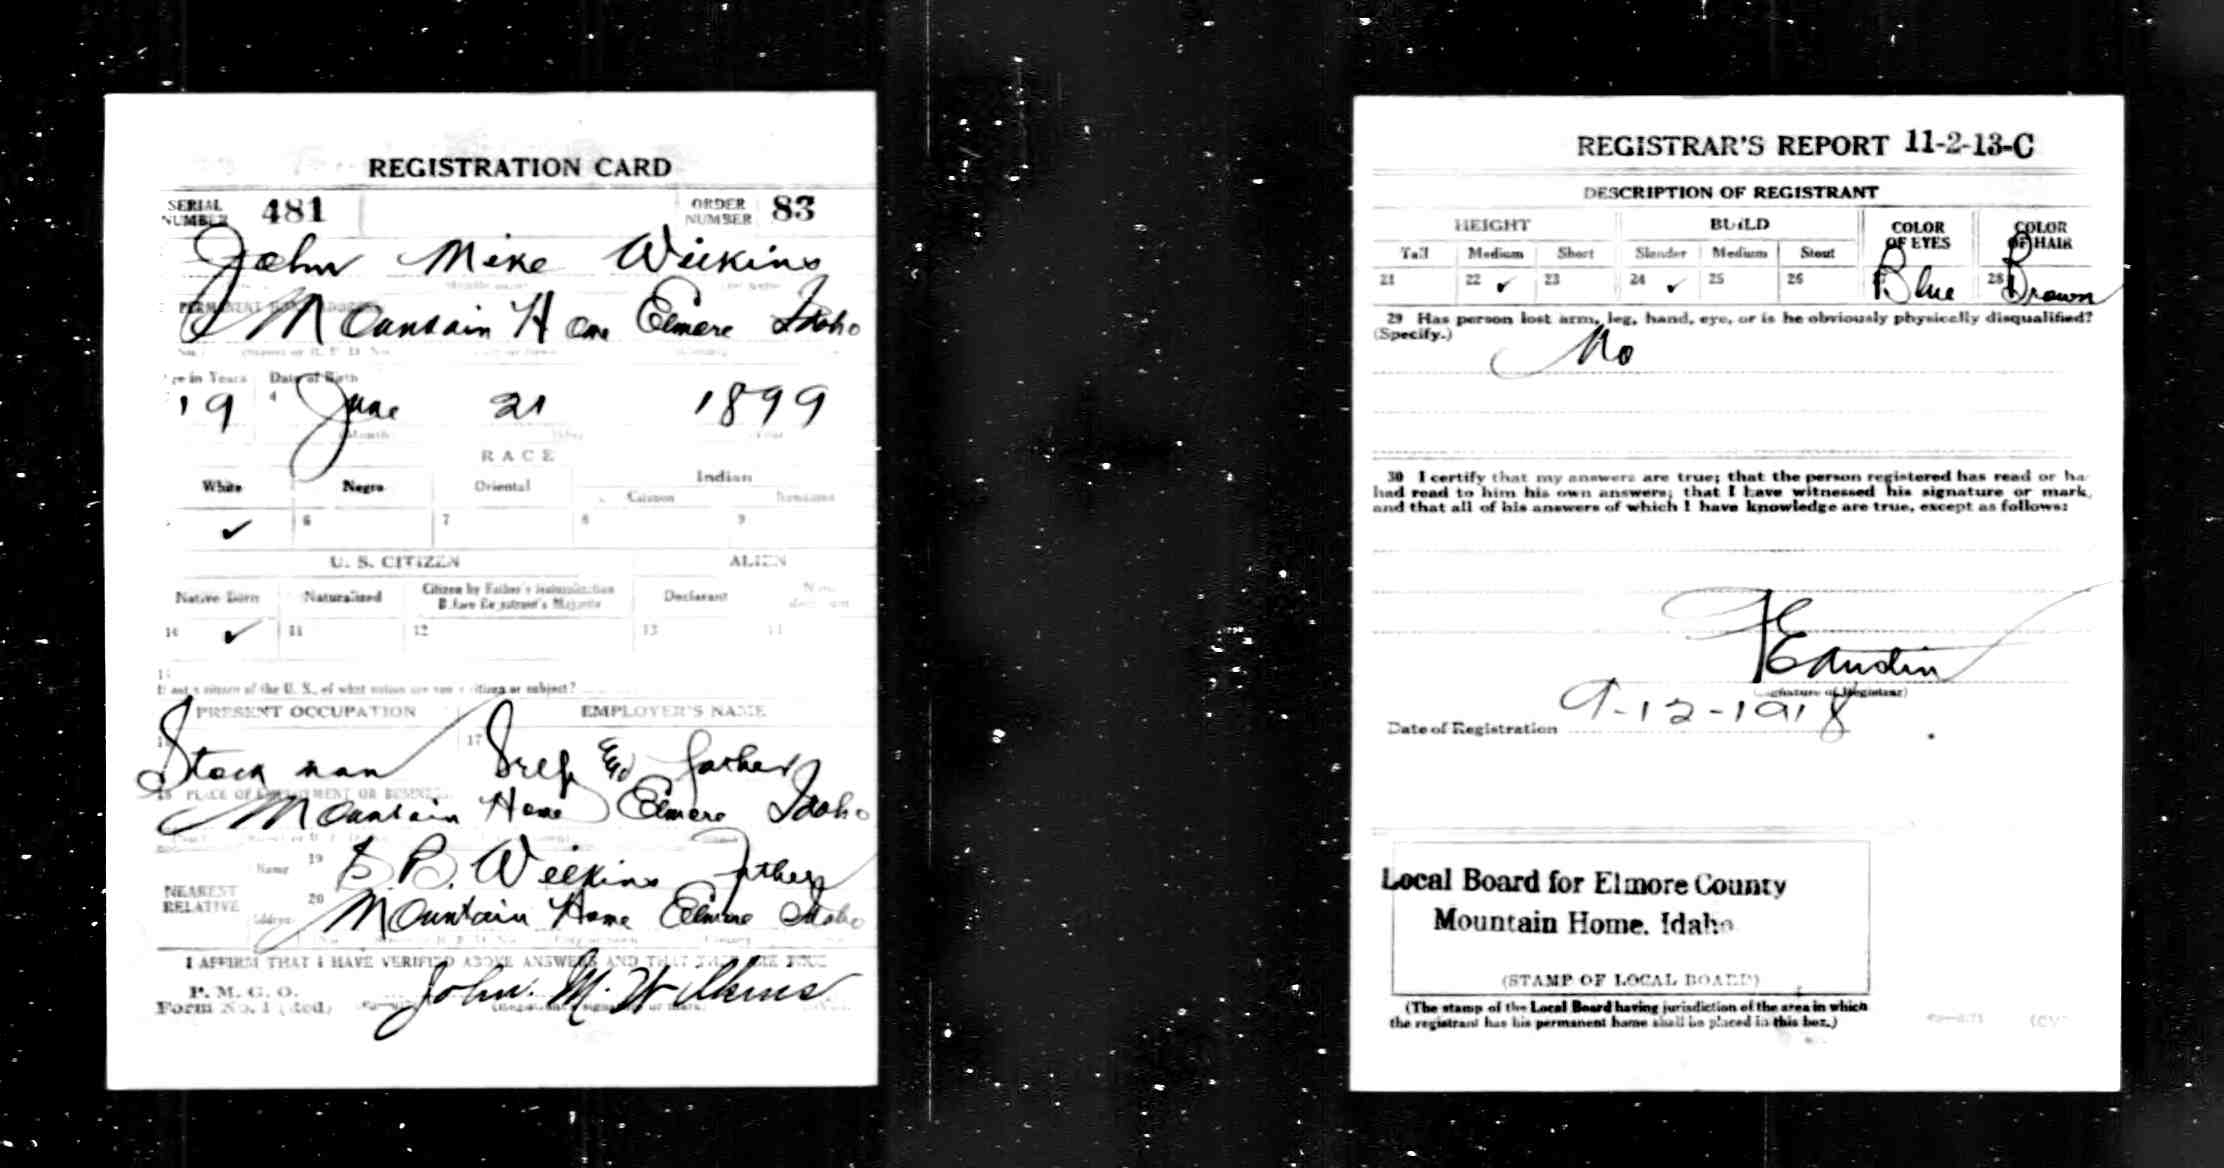 REGISTRATION CARD
SERIAL NUMBER 481 ORDER NUMBER 83
John Mike Wilkins
PERMANENT HOME ADDRESS
Mountain Home Elmore Idaho
Age in Years Date of Birth
19 4 June 21 1899
Month Day Year
RACE
White Negro Oriental Indian
Citizen Noncitizen
✓ 6 7 8 9
U. S. CITIZEN ALIEN
Native Born Naturalized Citizen by Father's Naturalization Before Registrant's Majority Declarant Non-declarant
10 ✓ 11 12 13 14
15
If not a citizen of the U. S., of what nation are you a citizen or subject?
PRESENT OCCUPATION EMPLOYER'S NAME
16 Stock man 17 Self & father
18 PLACE OF EMPLOYMENT OR BUSINESS
Mountain Home Elmore Idaho
NEAREST RELATIVE
Name 19 B. Wilkins Father
Address 20 Mountain Home Elmore Idaho
I AFFIRM THAT I HAVE VERIFIED ABOVE ANSWERS AND THAT THEY ARE TRUE
P. M. G. O.
Form No. 1 (Red)
John. M. Wilkins
(Registrant's signature or mark)
REGISTRAR'S REPORT 11-2-13-C
DESCRIPTION OF REGISTRANT
HEIGHT BUILD COLOR OF EYES COLOR OF HAIR
Tall Medium Short Slender Medium Stout
21 22 ✓ 23 24 ✓ 25 26 Blue 28 Brown
29 Has person lost arm, leg, hand, eye, or is he obviously physically disqualified?
(Specify.)
No
30 I certify that my answers are true; that the person registered has read or has
had read to him his own answers; that I have witnessed his signature or mark,
and that all of his answers of which I have knowledge are true, except as follows:
(Signature of Registrar)
Date of Registration 9-12-1918
Local Board for Elmore County
Mountain Home, Idaho
(STAMP OF LOCAL BOARD)
(The stamp of the Local Board having jurisdiction of the area in which
the registrant has his permanent home shall be placed in this box.)